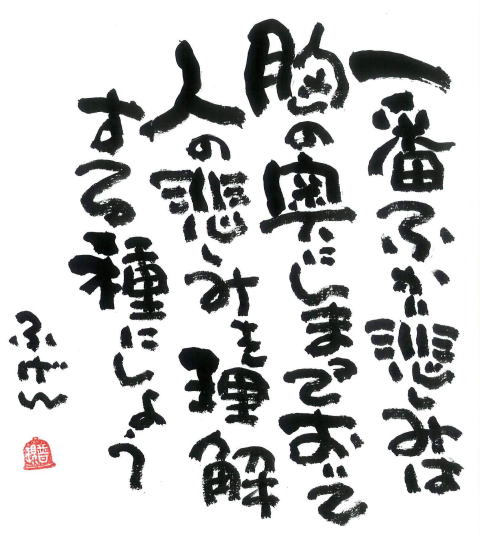 一番ふかい悲しみは
胸の奥にしまっておいて
人の悲しみを理解
する種にしよう
ふげん